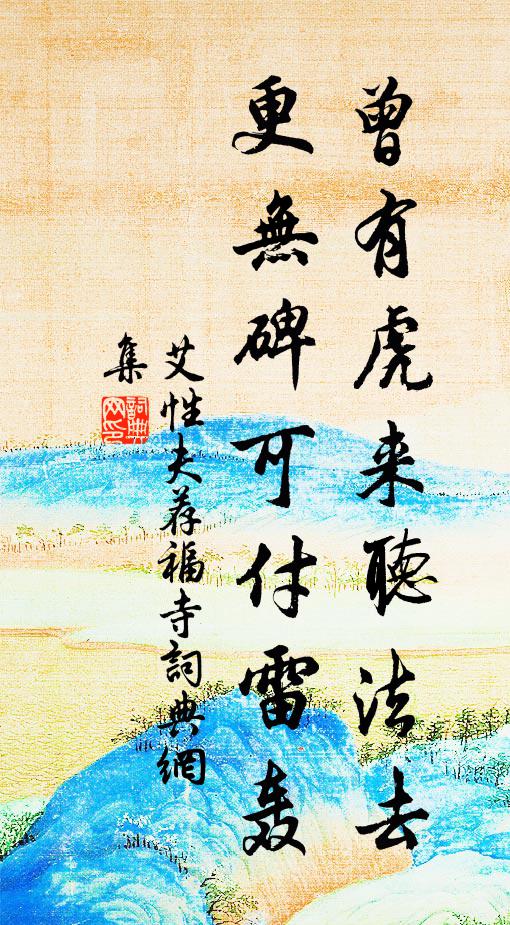 曾有虎来聽法去
更無碑可付雷轰
艾性夫荐福寺詞典網
集
詞典網印